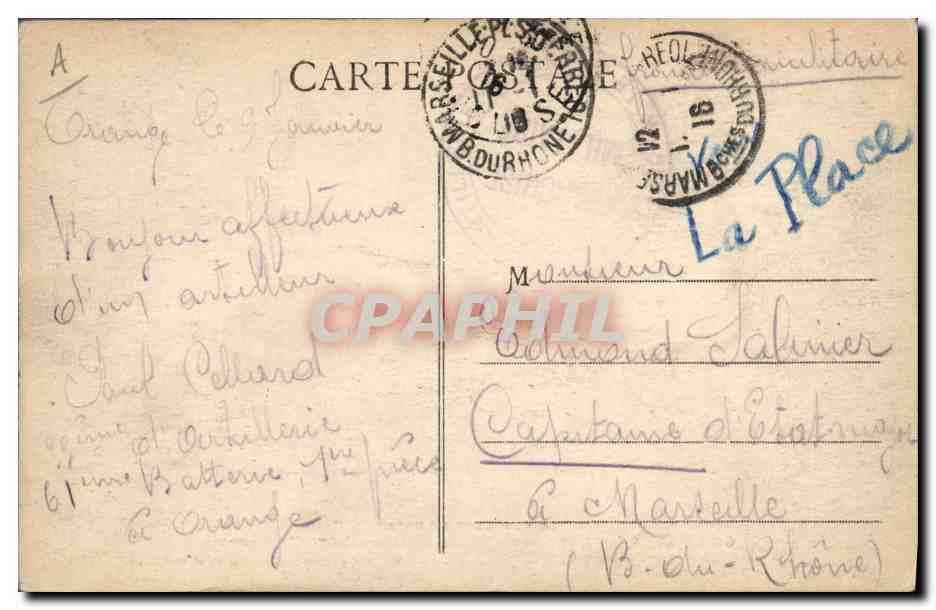 A
CARTE POSTALE
militaire
MARSEILLE
B. DU RHONE
12
1.16
B^CHES DU RHONE
La Place
Orange le 9 Janvier
Bonjour affectueux
d'un artilleur
Paul
d'Artillerie
61ème Batterie, 1re pièce
à Orange
Monsieur
Edmond Salinier
Capitaine d'Etat major
à Marseille
(B-du-Rhône)
CPAPHIL